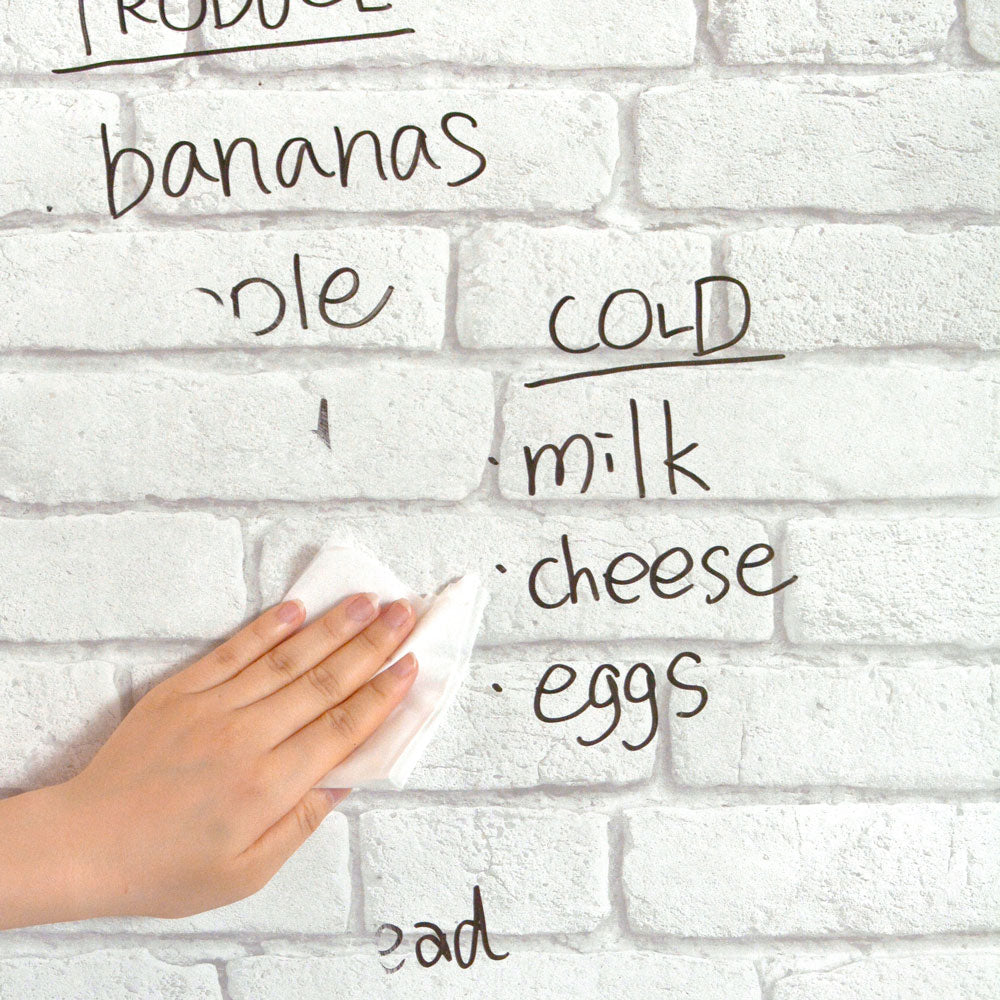 PRODUCE
bananas
COLD
• milk
• cheese
• eggs